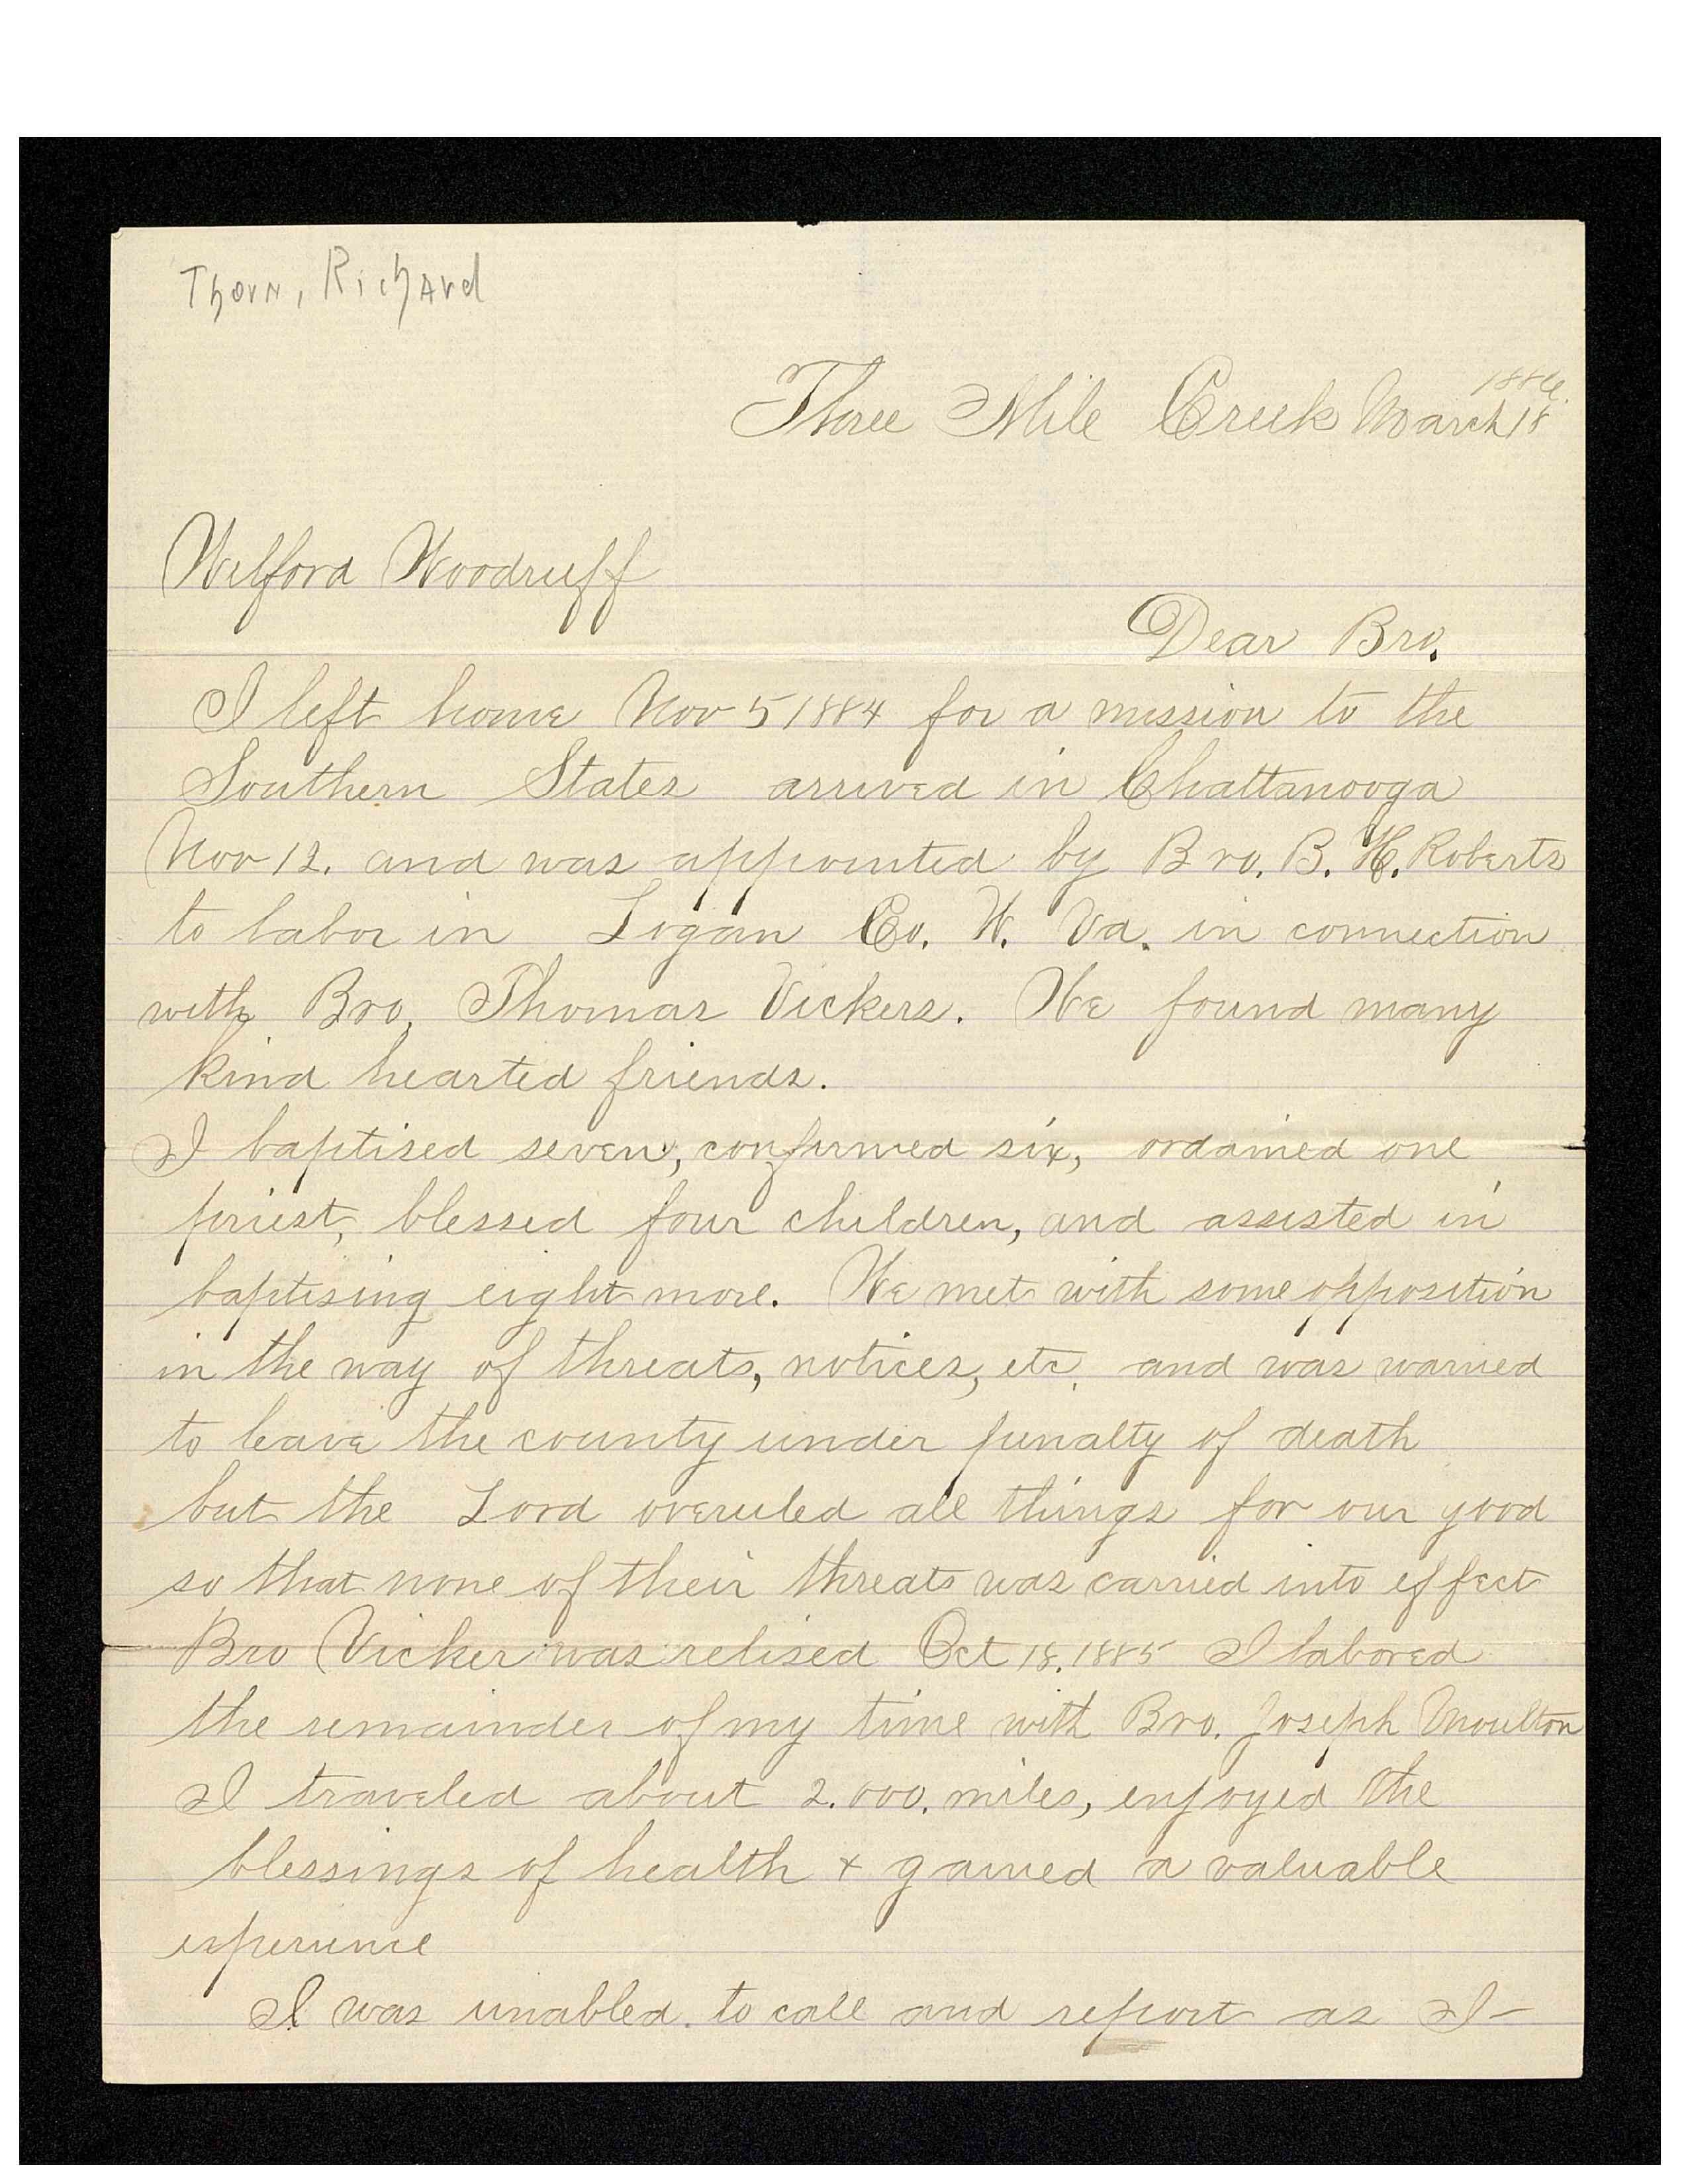 Thorn, Richard
1886.
Three Mile Creek March 18
Welford Woodruff
Dear Bro.
I left home Nov 5 1884 for a mission to the
Southern States arrived in Chattanooga
Nov 12. and was appointed by Bro. B. H. Roberts
to labor in Logan Co. W. Va. in connection
with Bro. Thomas Vickers. We found many
kind hearted friends.
I baptised seven, confirmed six, ordained one
priest, blessed four children, and assisted in
baptising eight more. We met with some opposition
in the way of threats, notices, etc. and was warned
to leave the county under penalty of death
but the Lord overuled all things for our good
so that none of their threats was carried into effect
Bro Vicker was relised Oct 18, 1885 I labored
the remainder of my time with Bro. Joseph Moulton
I traveled about 2.000. miles, enjoyed the
blessings of health + gained a valuable
experience
I was unabled to call and report as I